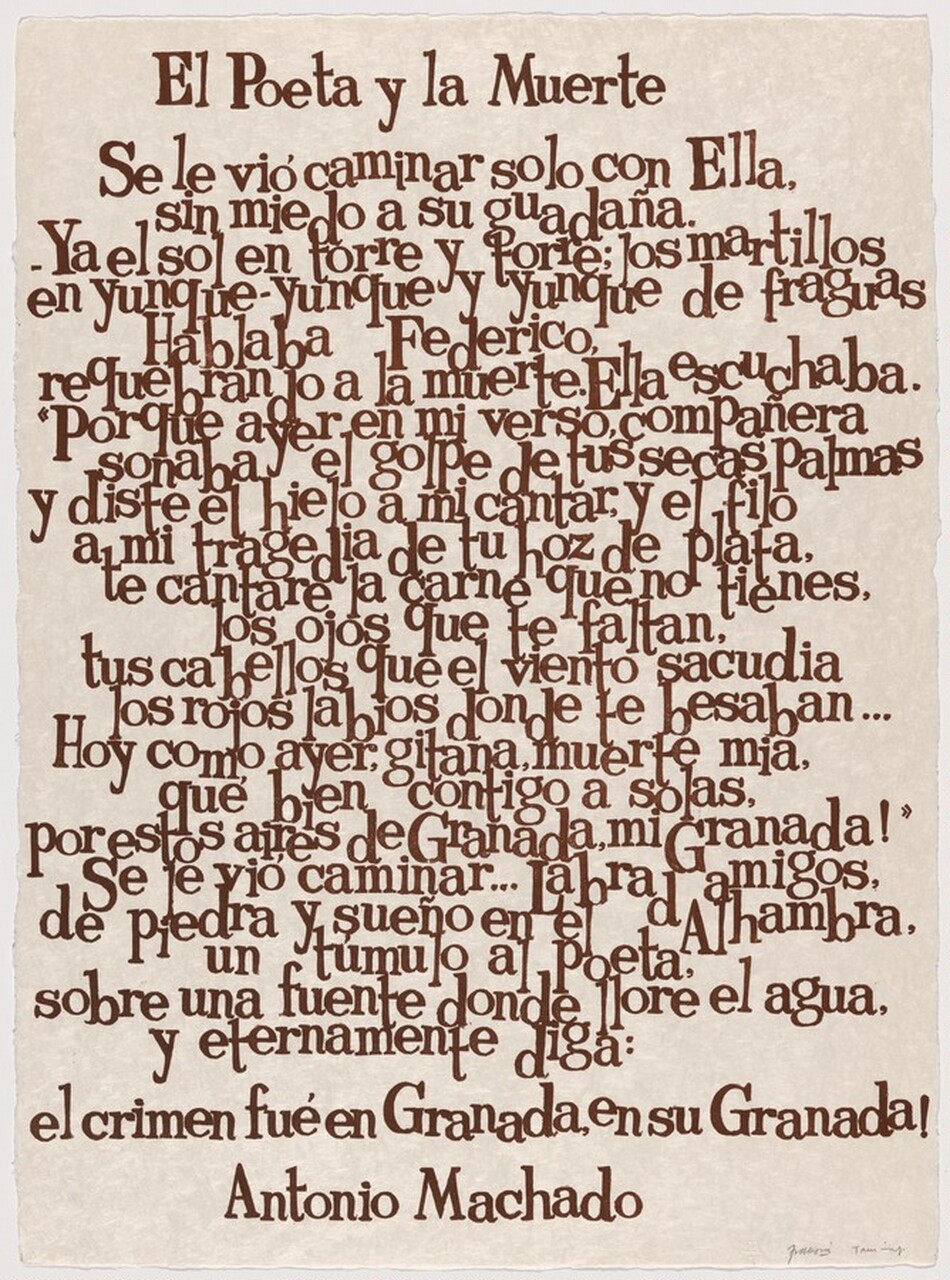 El Poeta y la Muerte
Se le vió caminar solo con Ella,
sin miedo a su guadaña.
-Ya el sol en torre y torre; los martillos
en yunque-yunque y yunque de fraguas
Hablaba Federico,
requebrando a la muerte. Ella escuchaba.
"Porque ayer en mi verso, compañera
sonaba el golpe de tus secas palmas
y diste el hielo a mi cantar, y el filo
a mi tragedia de tu hoz de plata,
te cantaré la carne que no tienes,
los ojos que te faltan,
tus cabellos que el viento sacudia
los rojos labios donde te besaban...
Hoy como ayer, gitana, muerte mia,
que bien contigo a solas,
por estos aires de Granada, mi Granada!"
Se le vió caminar... Labrad amigos,
de piedra y sueño en el Alhambra,
un túmulo al poeta,
sobre una fuente donde llore el agua,
y eternamente diga:
el crimen fué en Granada, en su Granada!
Antonio Machado